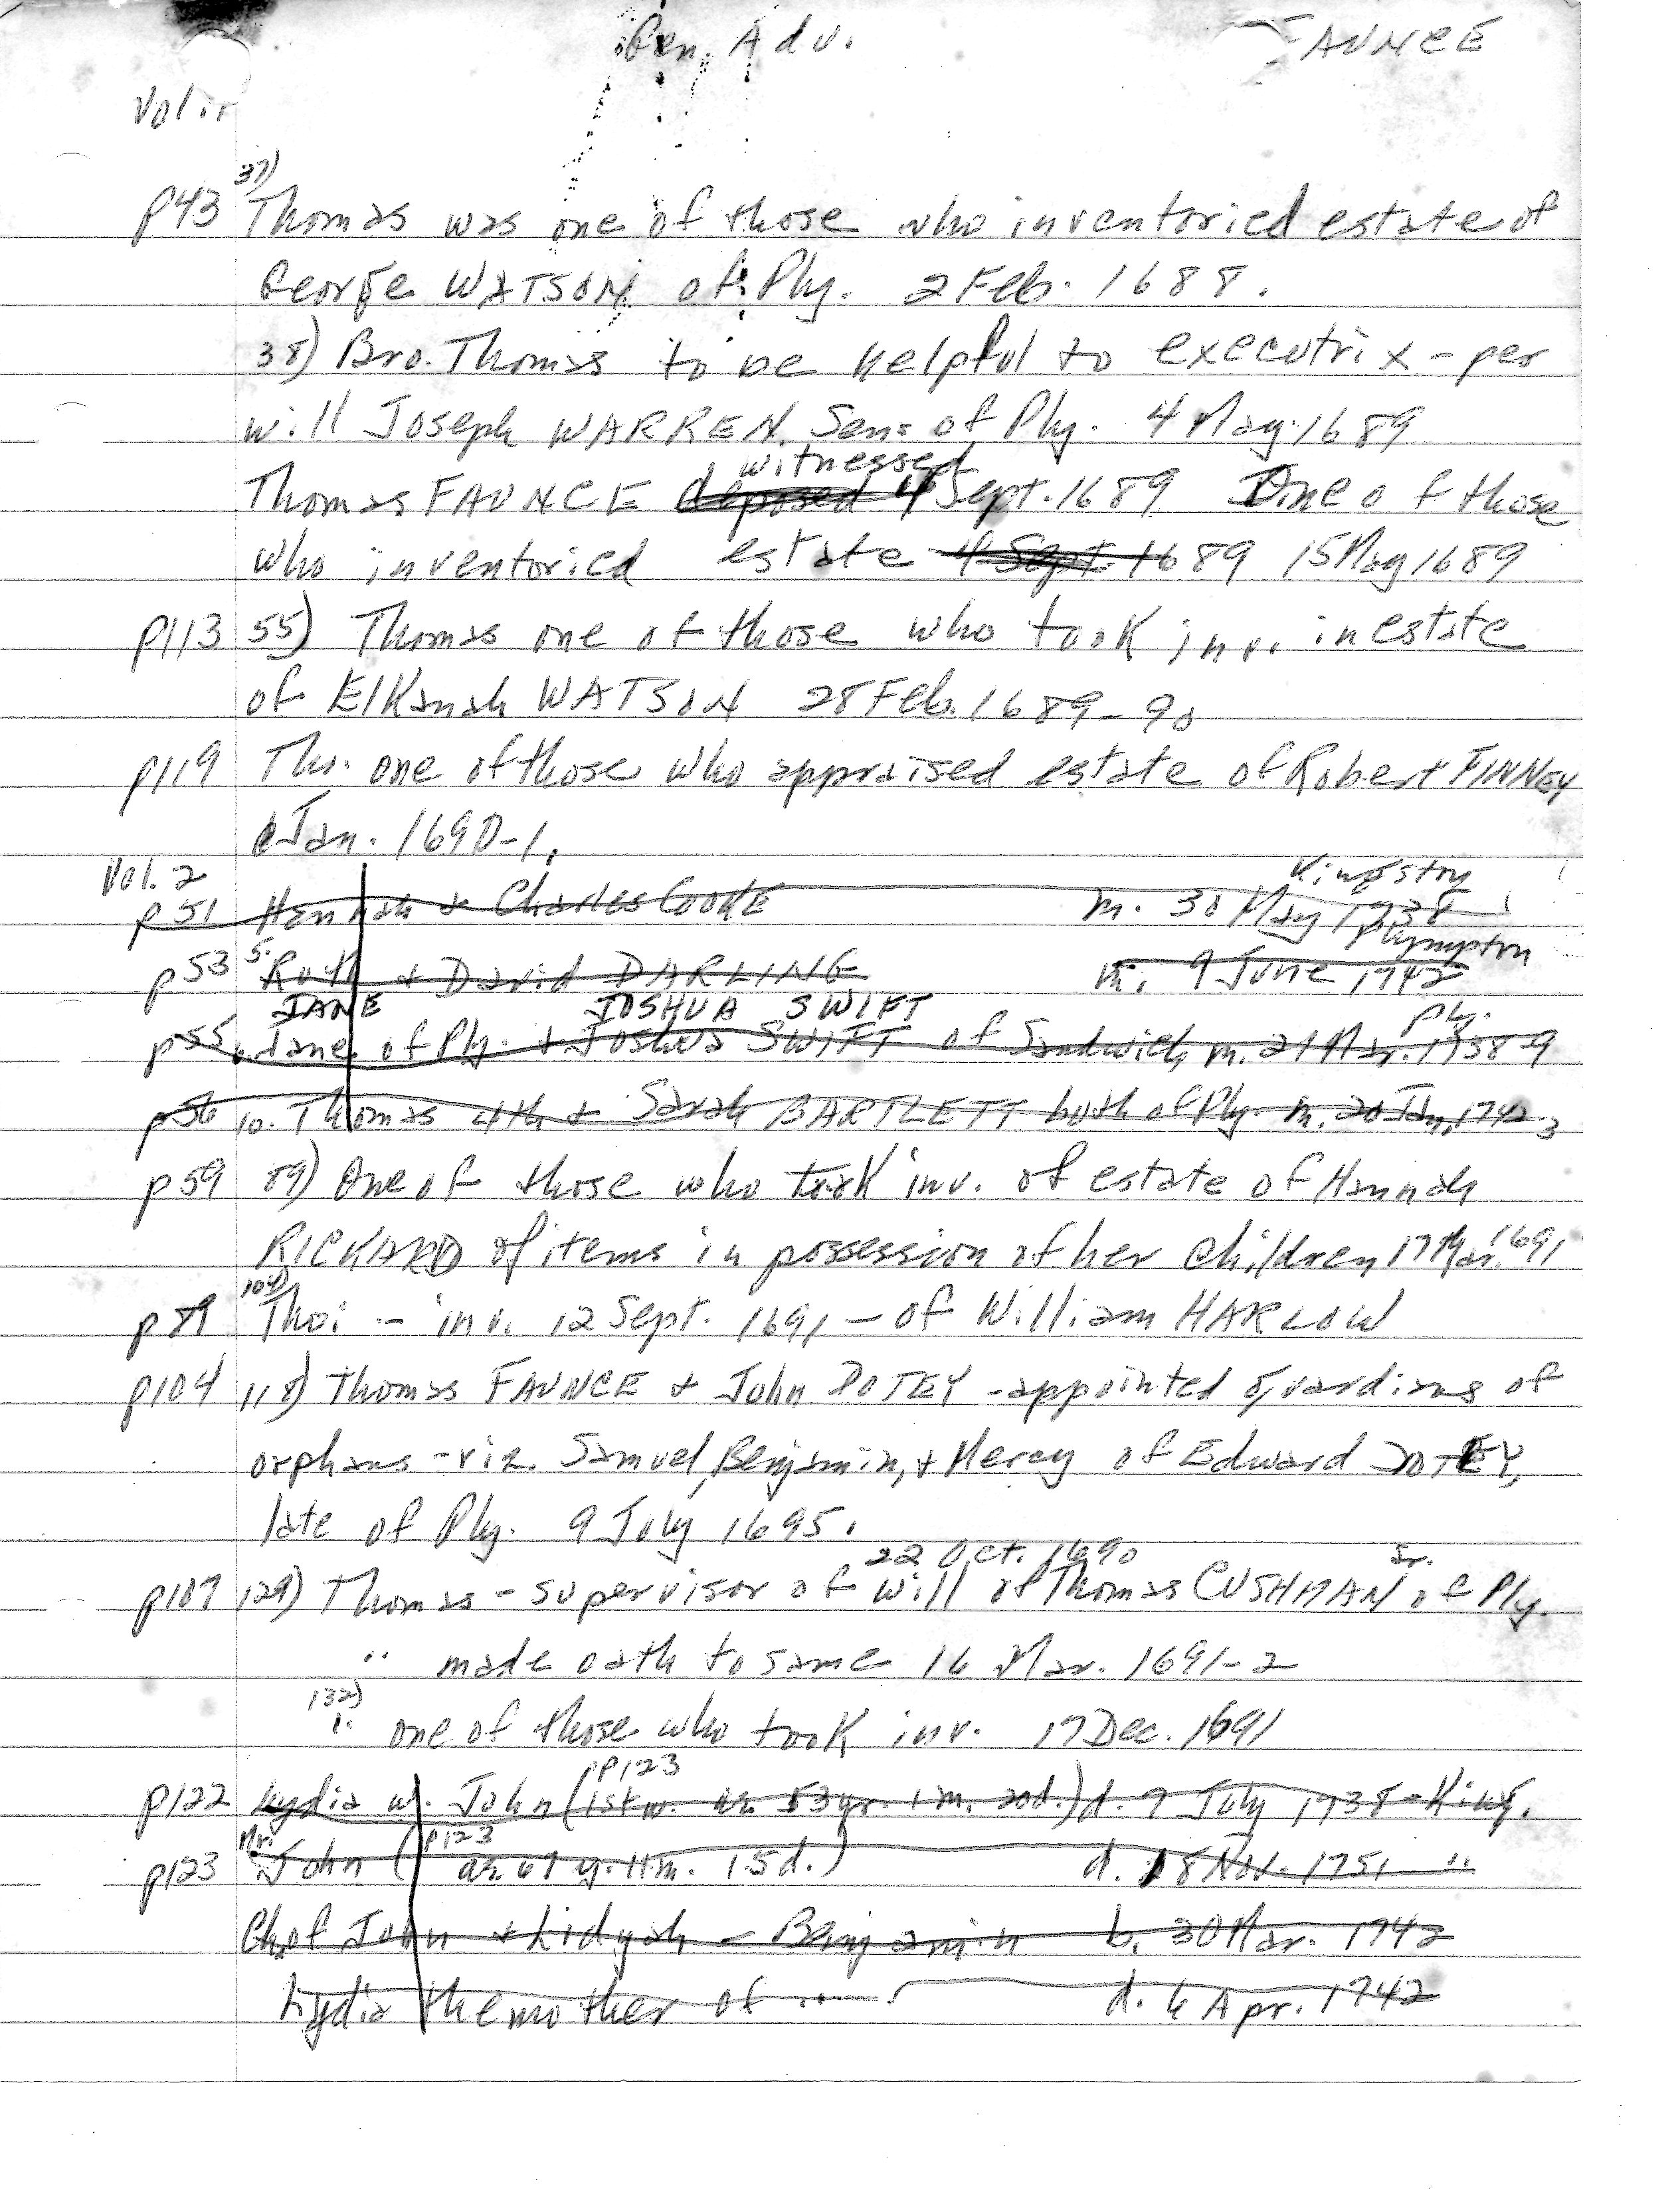 Gen. Adv. FAUNCE
Vol. 1
37)
p43 Thomas was one of those who inventoried estate of
George WATSON of Ply. 2 Feb. 1688.
38) Bro. Thomas to be helpful to executrix - per
will Joseph WARREN, Sen= of Ply. 4 May 1689
witnessed
Thomas FAUNCE deposed 4 Sept. 1689 One of those
who inventoried estate 4 Sept 1689 15 May 1689
p113 55) Thomas one of those who took inv. in estate
of Elkanah WATSON 28 Feb. 1689-90
p119 Tho. one of those who appraised estate of Robert FINNEY
Jan. 1690-1.
Vol. 2 Kingston
p51 Hannah & Charles COOKE m. 30 May 1738
Plympton
p53 5. Ruth & David DARLING m. 9 June 1742
JANE JOSHUA SWIFT Ply.
p55 Jane of Ply. & Joshua SWIFT of Sandwich m. 21 Mar. 1738-9
p56 10. Thomas 4th & Sarah BARTLETT both of Ply. m. 20 Jan. 1742 3
p59 89) One of those who took inv. of estate of Hannah
RICKARD of items in possession of her children 17 Mar. 1691
104)
p89 Tho: - inv. 12 Sept. 1691 - of William HARLOW
p104 118) Thomas FAUNCE & John DOTEY - appointed guardians of
orphans - viz. Samuel, Benjamin, & Mercy of Edward DOTEY,
late of Ply. 9 July 1695.
22 Oct. 1690 Sr.
p107 129) Thomas - supervisor of will of Thomas CUSHMAN of Ply.
" made oath to same 16 Mar. 1691-2
132)
" one of those who took inv. 17 Dec. 1691
p123
p122 Lydia w. John (1st w. ae. 53 yr. 1 m. 20d.) d. 7 July 1738 - King.
Mr. p123
p123 John ( ae. 67 y. 11m. 15d.) d. 18 Nov. 1751 "
Ch. of John & Lidyah - Benjamin b. 30 Mar. 1742
Lydia the mother of .... d. 6 Apr. 1742